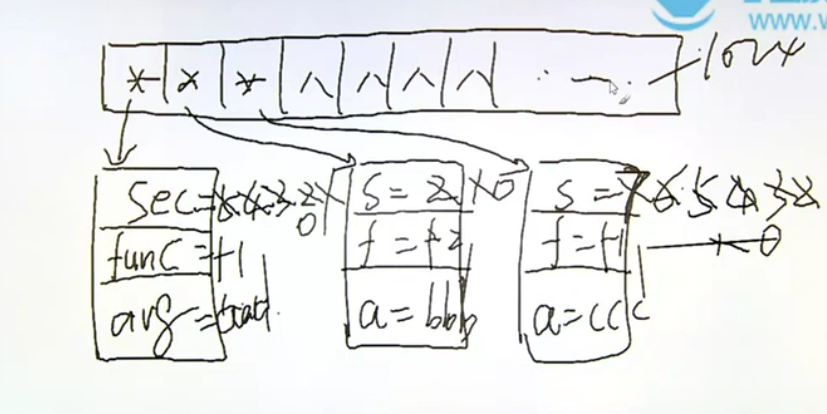 www.
* * * ^ ^ ^ ^ · — · 1024
sec=5 4 3 2 1
0
func=f1
arg=aaa
s=2 1 0
f=f2
a=bbb
s=7 6 5 4 3 2
1 0
f=f1
a=ccc